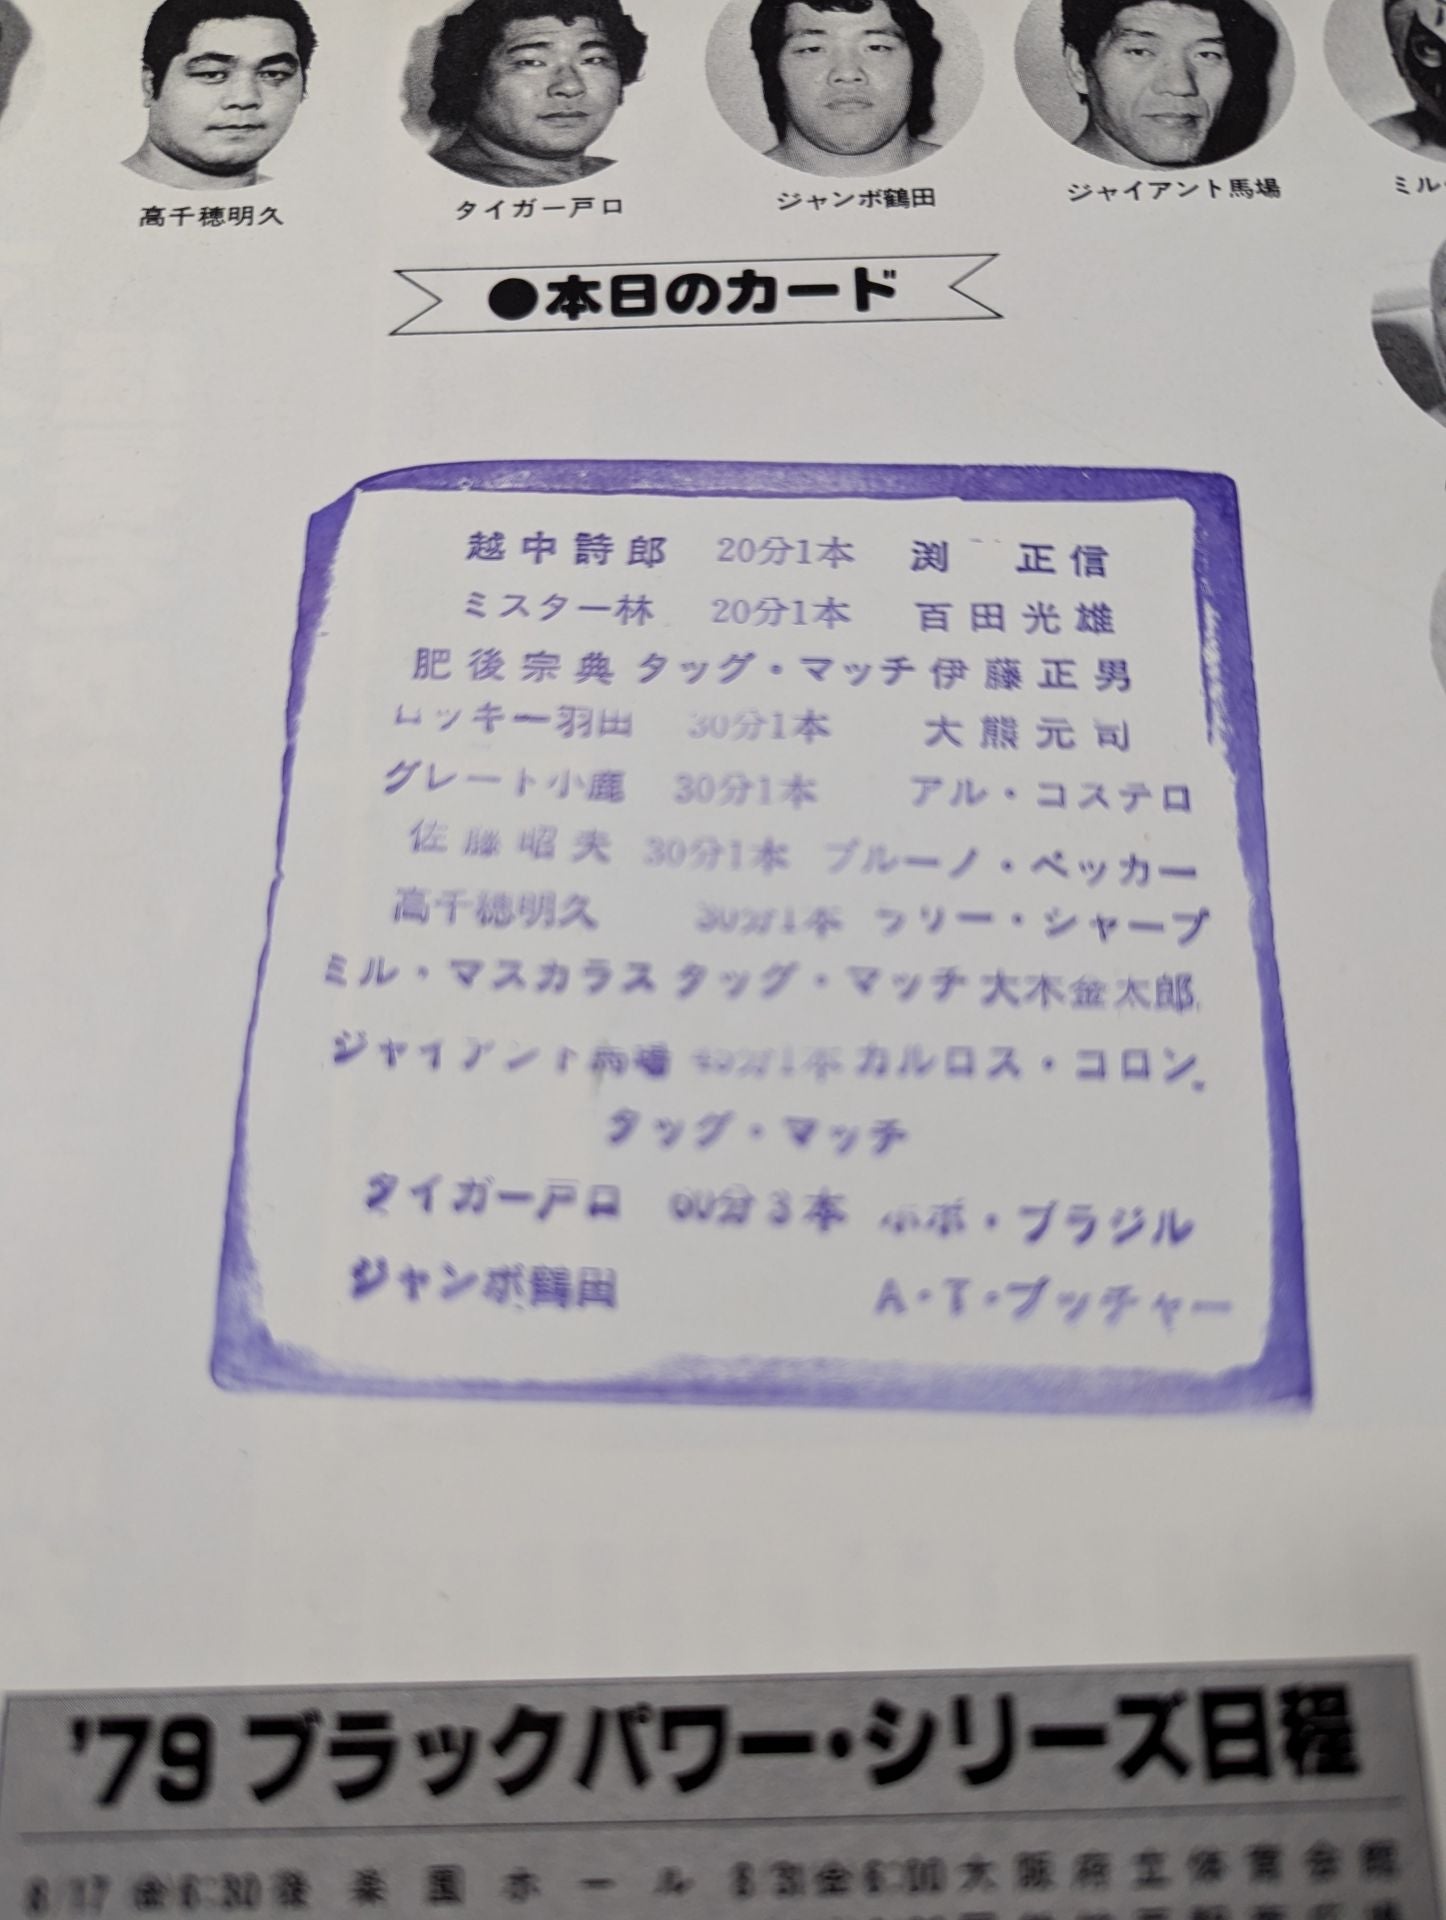 高千穂明久 タイガー戸口 ジャンボ鶴田 ジャイアント馬場 ミル
●本日のカード
越中詩郎 20分1本 渕 正信
ミスター林 20分1本 百田光雄
肥後宗典 タッグ・マッチ 伊藤正男
ロッキー羽田 30分1本 大熊元司
グレート小鹿 30分1本 アル・コステロ
佐藤昭夫 30分1本 ブルーノ・ベッカー
高千穂明久 30分1本 ラリー・シャープ
ミル・マスカラス タッグ・マッチ 大木金太郎
ジャイアント馬場 45分1本 カルロス・コロン
タッグ・マッチ
タイガー戸口 60分3本 ボボ・ブラジル
ジャンボ鶴田 A・T・ブッチャー
'79 ブラックパワー・シリーズ日程
8/17 金6:30後楽園ホール 8/31金6:00大阪府立体育会館